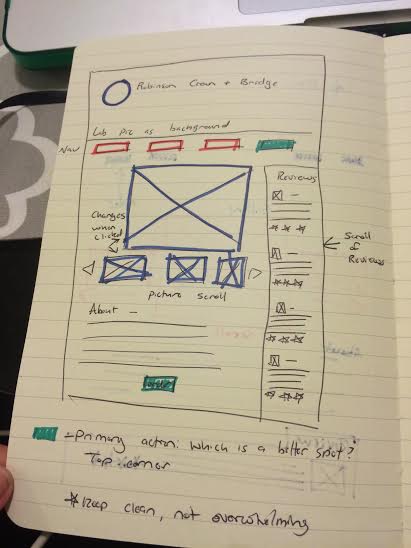 Robinson Crown + Bridge
Lab pic as background
Nav
Reviews
Changes
when
clicked
Scroll
of
Reviews
picture scroll
About -
order
- Primary action: which is a better spot?
Top corner
* Keep clean, not overwhelming